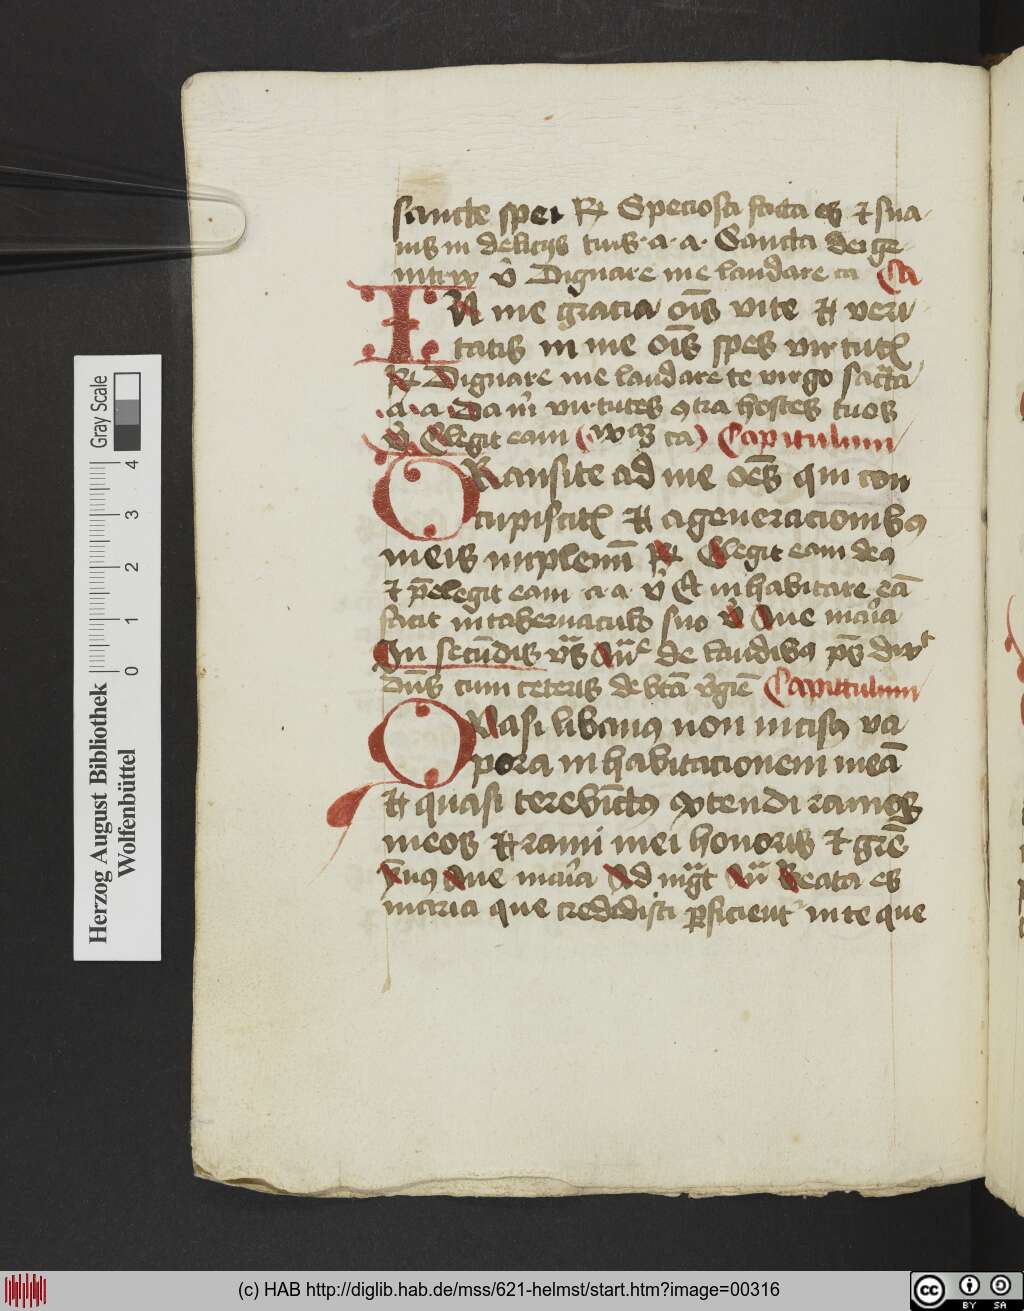 sancte spei R Speciosa facta es et sua
uis in delicijs tuis a a Sancta dei ge
nitrix v̉ Dignare me laudare ca Ca
IN me gracia oı̄s vite et veri
tatis in me oı̄s spes virtutꝭ
R Dignare me laudare te virgo sac̄ta
a a Da m̄ virtutes ꝯtra hostes tuos
v̉ Elegit eam ca Capitulum
TRansite ad me oēs qui con
cupiscitꝭ et a generacionibꝰ
meis implemī R Elegit eam deꝰ
et p̄elegit eam a a v̉ Et inhabitare eā
facit in tabernaculo suo v̉ Aue mar̉ia
In secūdis v̄s de laudibꝰ p̄s
Dn̄s cum ceteris de btā v̉gīe Capittulum
QVasi libanꝰ non incisꝰ va
pora inhabitacionem meā
et quasi terebīctꝰ extendi ramos
meos et rami mei honoris et grē
ymꝰ Aue mar̉ia Ad mḡt an̄ Beata es
maria que credidisti ꝑficient in te que
Gray Scale
0 1 2 3 4
Herzog August Bibliothek
Wolfenbüttel
(c) HAB http://diglib.hab.de/mss/621-helmst/start.htm?image=00316
cc BY SA